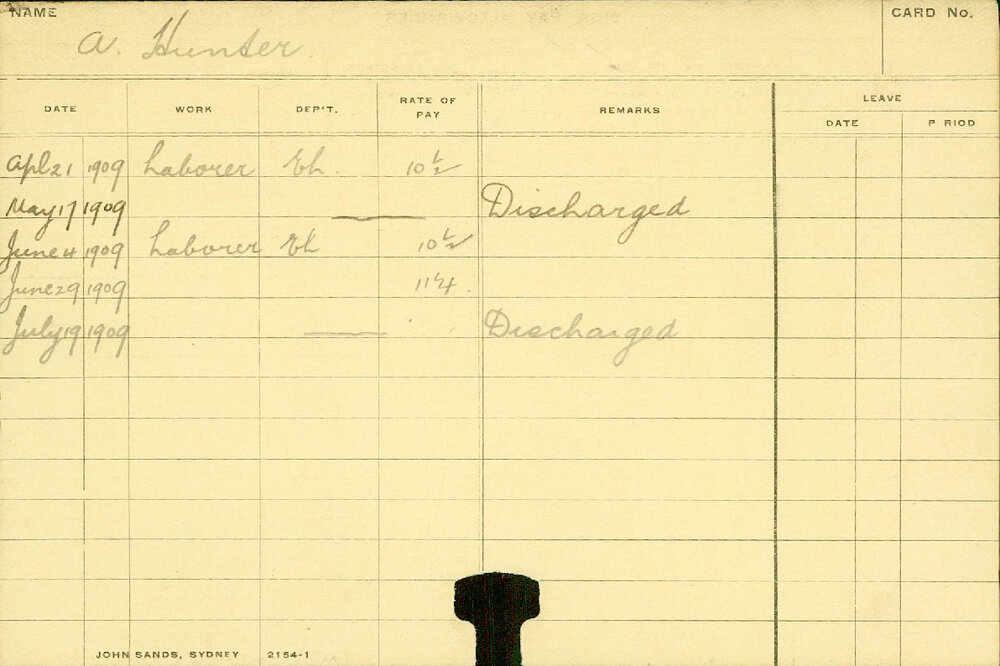 NAME
CARD No.
A. Hunter.
DATE WORK DEP'T. RATE OF PAY REMARKS LEAVE
DATE P RIOD
Apl 21 1909 Laborer Eh. 10½
May 17 1909 Discharged
June 4 1909 Laborer Eh 10½
June 29 1909 11¼.
July 19 1909 Discharged
JOHN SANDS, SYDNEY 2154-1